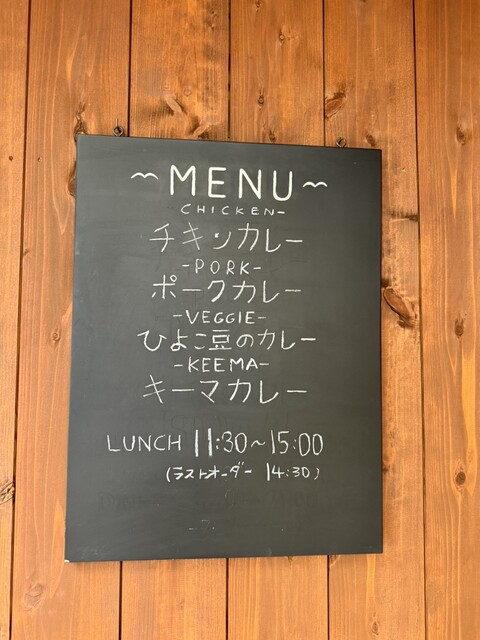 ~MENU~
CHICKEN-
チキンカレー
-PORK-
ポークカレー
-VEGGIE-
ひよこ豆のカレー
-KEEMA-
キーマカレー
LUNCH 11:30~15:00
(ラストオーダー 14:30)